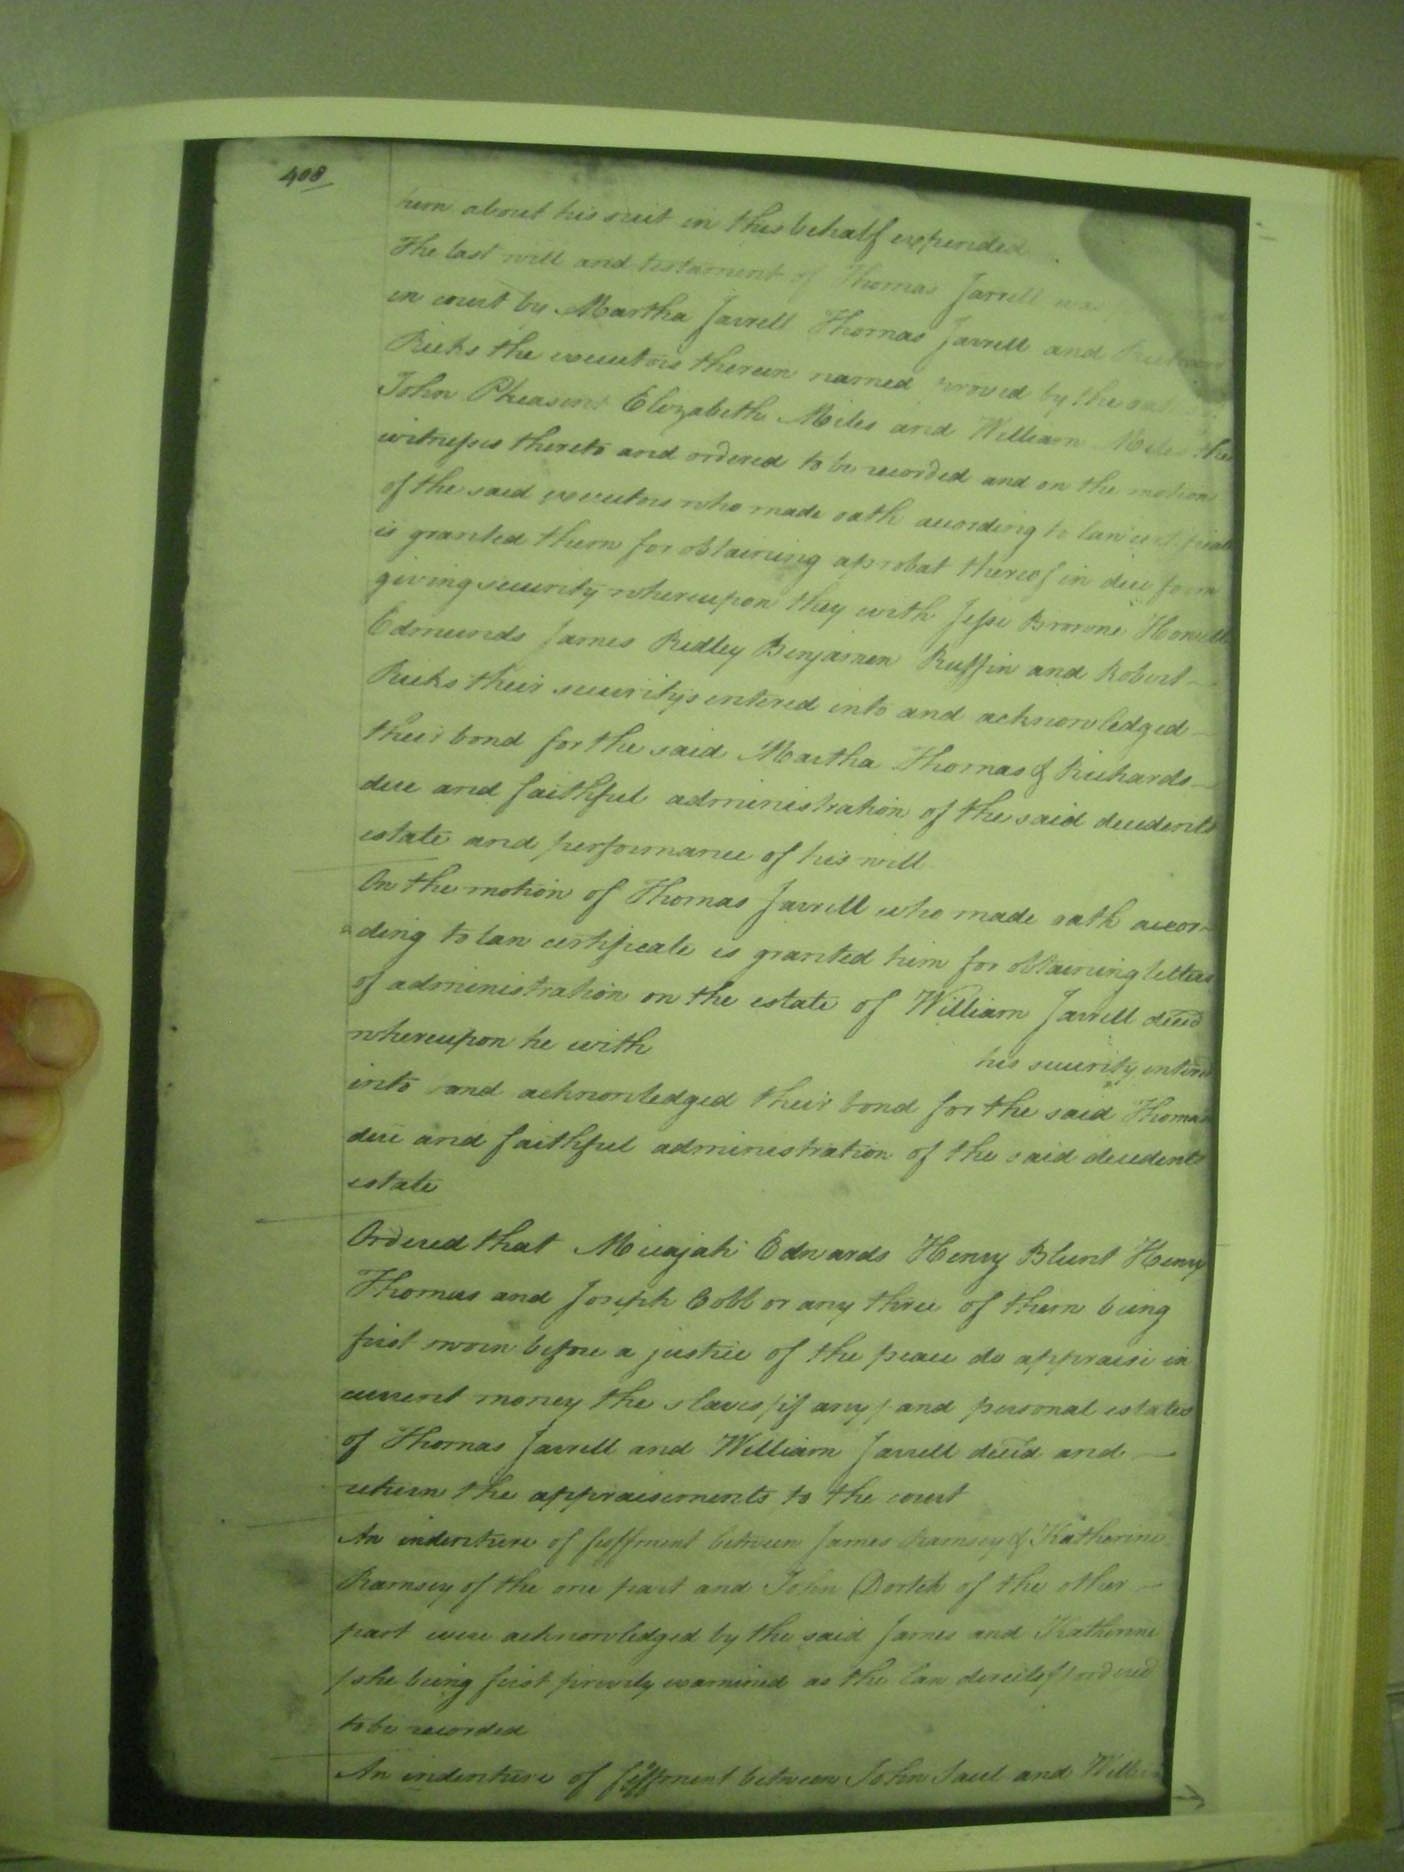 408
him about his suit in this behalf expended
The last will and testament of Thomas Jarrell was
in court by Martha Jarrell Thomas Jarrell and Richard
Ricks the executors therein named proved by the oath of
John Pleasent Elizabeth Miles and William Miles the
witnesses thereto and ordered to be recorded and on the motion
of the said executors who made oath according to law certificate
is granted them for obtaining a probat thereof in due form
giving security whereupon they with Jesse Browne Howell
Edmunds James Ridley Benjamen Ruffin and Robert —
Ricks their securitys entered into and acknowledged —
their bond for the said Martha Thomas & Richards —
due and faithful administration of the said decedents
estate and performance of his will
On the motion of Thomas Jarrell who made oath accor-
ding to law certificate is granted him for obtaining letters
of administration on the estate of William Jarrell deced
whereupon he with his security entered
into and acknowledged their bond for the said Thomas
due and faithful administration of the said decedents
estate
Ordered that Micajah Edwards Henry Blunt Henry
Thomas and Joseph Cobb or any three of them being
first sworn before a justice of the peace do appraise in
current money the slaves /if any/ and personal estates
of Thomas Jarrell and William Jarrell deced and —
return the appraisements to the court
An indenture of feoffment between James Ramsey & Katherine
Ramsey of the one part and John Dortch of the other —
part were acknowledged by the said James and Katherine
/she being first privily examined as the law directs/ & ordered
to be recorded
An indenture of feoffment between John Saul and William